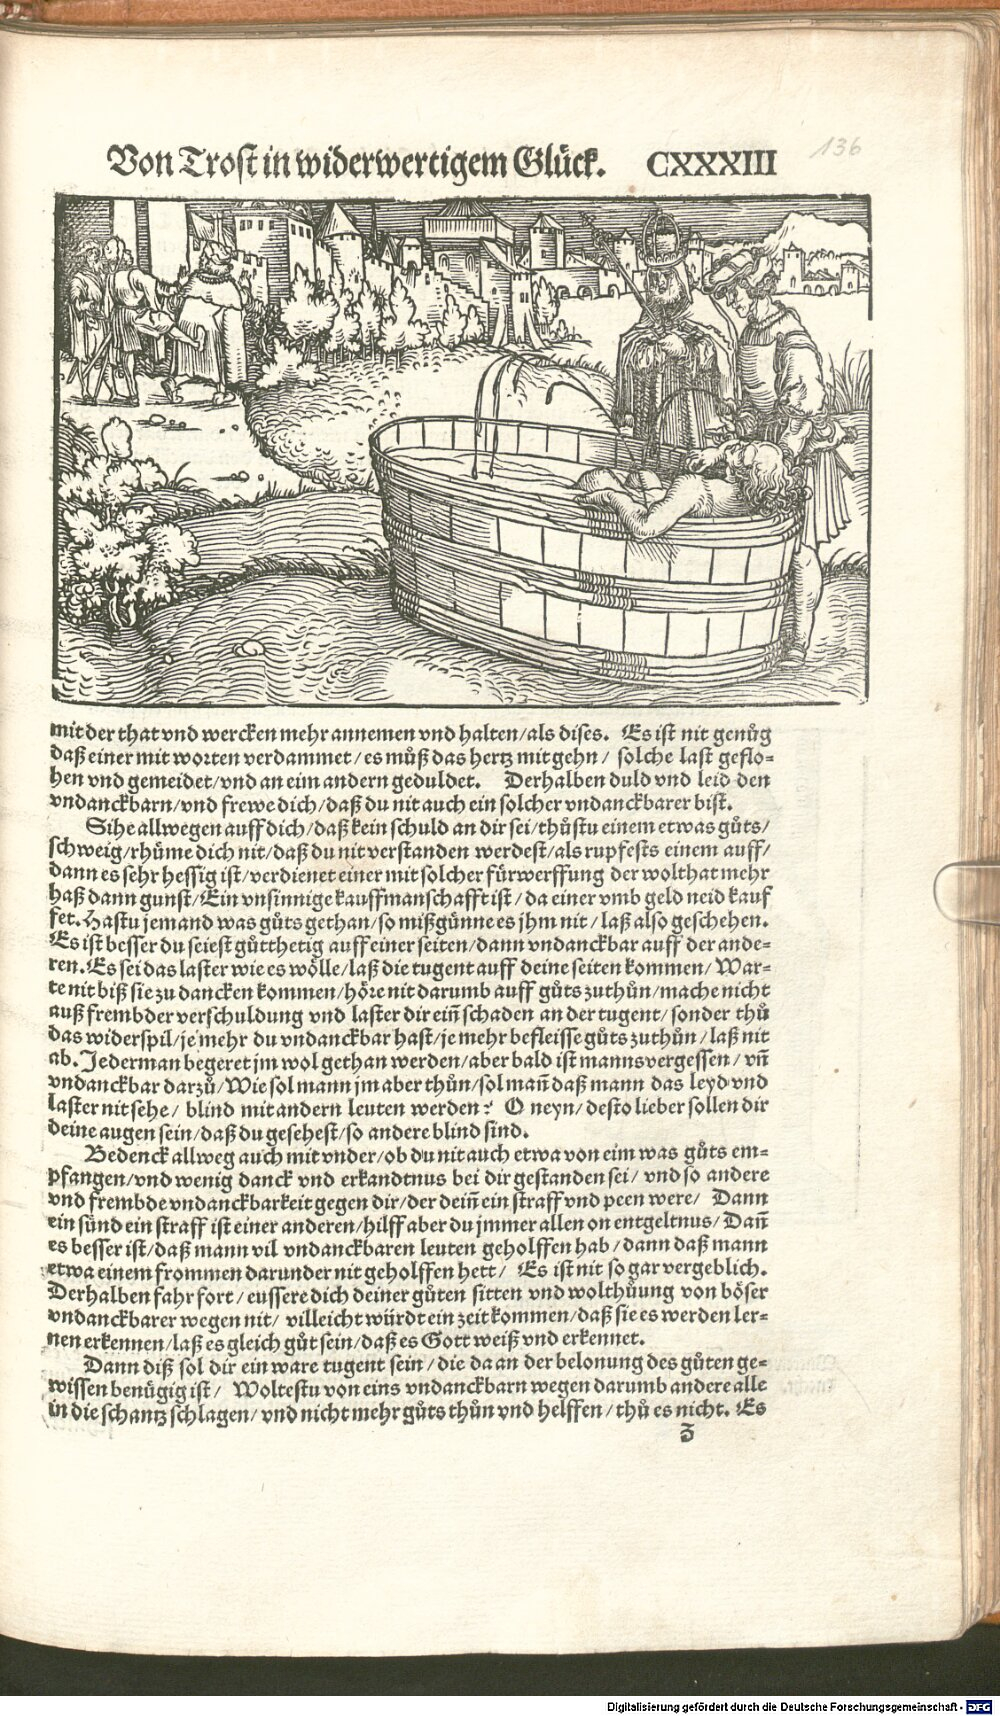 Von Trost in widerwertigem Glück. CXXXIII
136
mit der that vnd wercken mehr annemen vnd halten/als dises. Es ist nit genůg
daß einer mit worten verdammet/es můß das hertz mit gehn/ solche last geflo-
hen vnd gemeidet/vnd an eim andern geduldet. Derhalben duld vnd leid den
vndanckbarn/vnd frewe dich/daß du nit auch ein solcher vndanckbarer bist.
Sihe allwegen auff dich/daß kein schuld an dir sei/thůstu einem etwas gůts/
schweig/rhůme dich nit/daß du nit verstanden werdest/als rupfests einem auff/
dann es sehr hessig ist/verdienet einer mit solcher fürwerffung der wolthat mehr
haß dann gunst/Ein vnsinnige kauffmanschafft ist/da einer vmb geld neid kauf
fet. Hastu jemand was gůts gethan/so mißgünne es jhm nit/laß also geschehen.
Es ist besser du seiest gůtthetig auff einer seiten/dann vndanckbar auff der ande-
ren. Es sei das laster wie es wölle/laß die tugent auff deine seiten kommen/War-
te nit biß sie zu dancken kommen/höre nit darumb auff gůts zuthůn/mache nicht
auß frembder verschuldung vnd laster dir einñ schaden an der tugent/sonder thů
das widerspil/je mehr du vndanckbar hast/je mehr befleisse gůts zuthůn/laß nit
ab. Jederman begeret jm wol gethan werden/aber bald ist manns vergessen/vñ
vndanckbar darzů/Wie sol mann jm aber thůn/sol mañ daß mann das leyd vnd
laster nit sehe/ blind mit andern leuten werden? O neyn/desto lieber sollen dir
deine augen sein/daß du gesehest/so andere blind sind.
Bedenck allweg auch mit vnder/ob du nit auch etwa von eim was gůts em-
pfangen/vnd wenig danck vnd erkandtnus bei dir gestanden sei/vnd so andere
vnd frembde vndanckbarkeit gegen dir/der deiñ ein straff vnd peen were/ Dann
ein sünd ein straff ist einer anderen/hilff aber du jmmer allen on entgeltnus/Dañ
es besser ist/daß mann vil vndanckbaren leuten geholffen hab/dann daß mann
etwa einem frommen darunder nit geholffen hett/ Es ist nit so gar vergeblich.
Derhalben fahr fort/eussere dich deiner gůten sitten vnd wolthůung von böser
vndanckbarer wegen nit/villeicht würdt ein zeit kommen/daß sie es werden ler-
nen erkennen/laß es gleich gůt sein/daß es Gott weiß vnd erkennet.
Dann diß sol dir ein ware tugent sein/die da an der belonung des gůten ge-
wissen benůgig ist/ Woltestu von eins vndanckbarn wegen darumb andere alle
in die schantz schlagen/vnd nicht mehr gůts thůn vnd helffen/thů es nicht. Es
Z
Digitalisierung gefördert durch die Deutsche Forschungsgemeinschaft - DFG